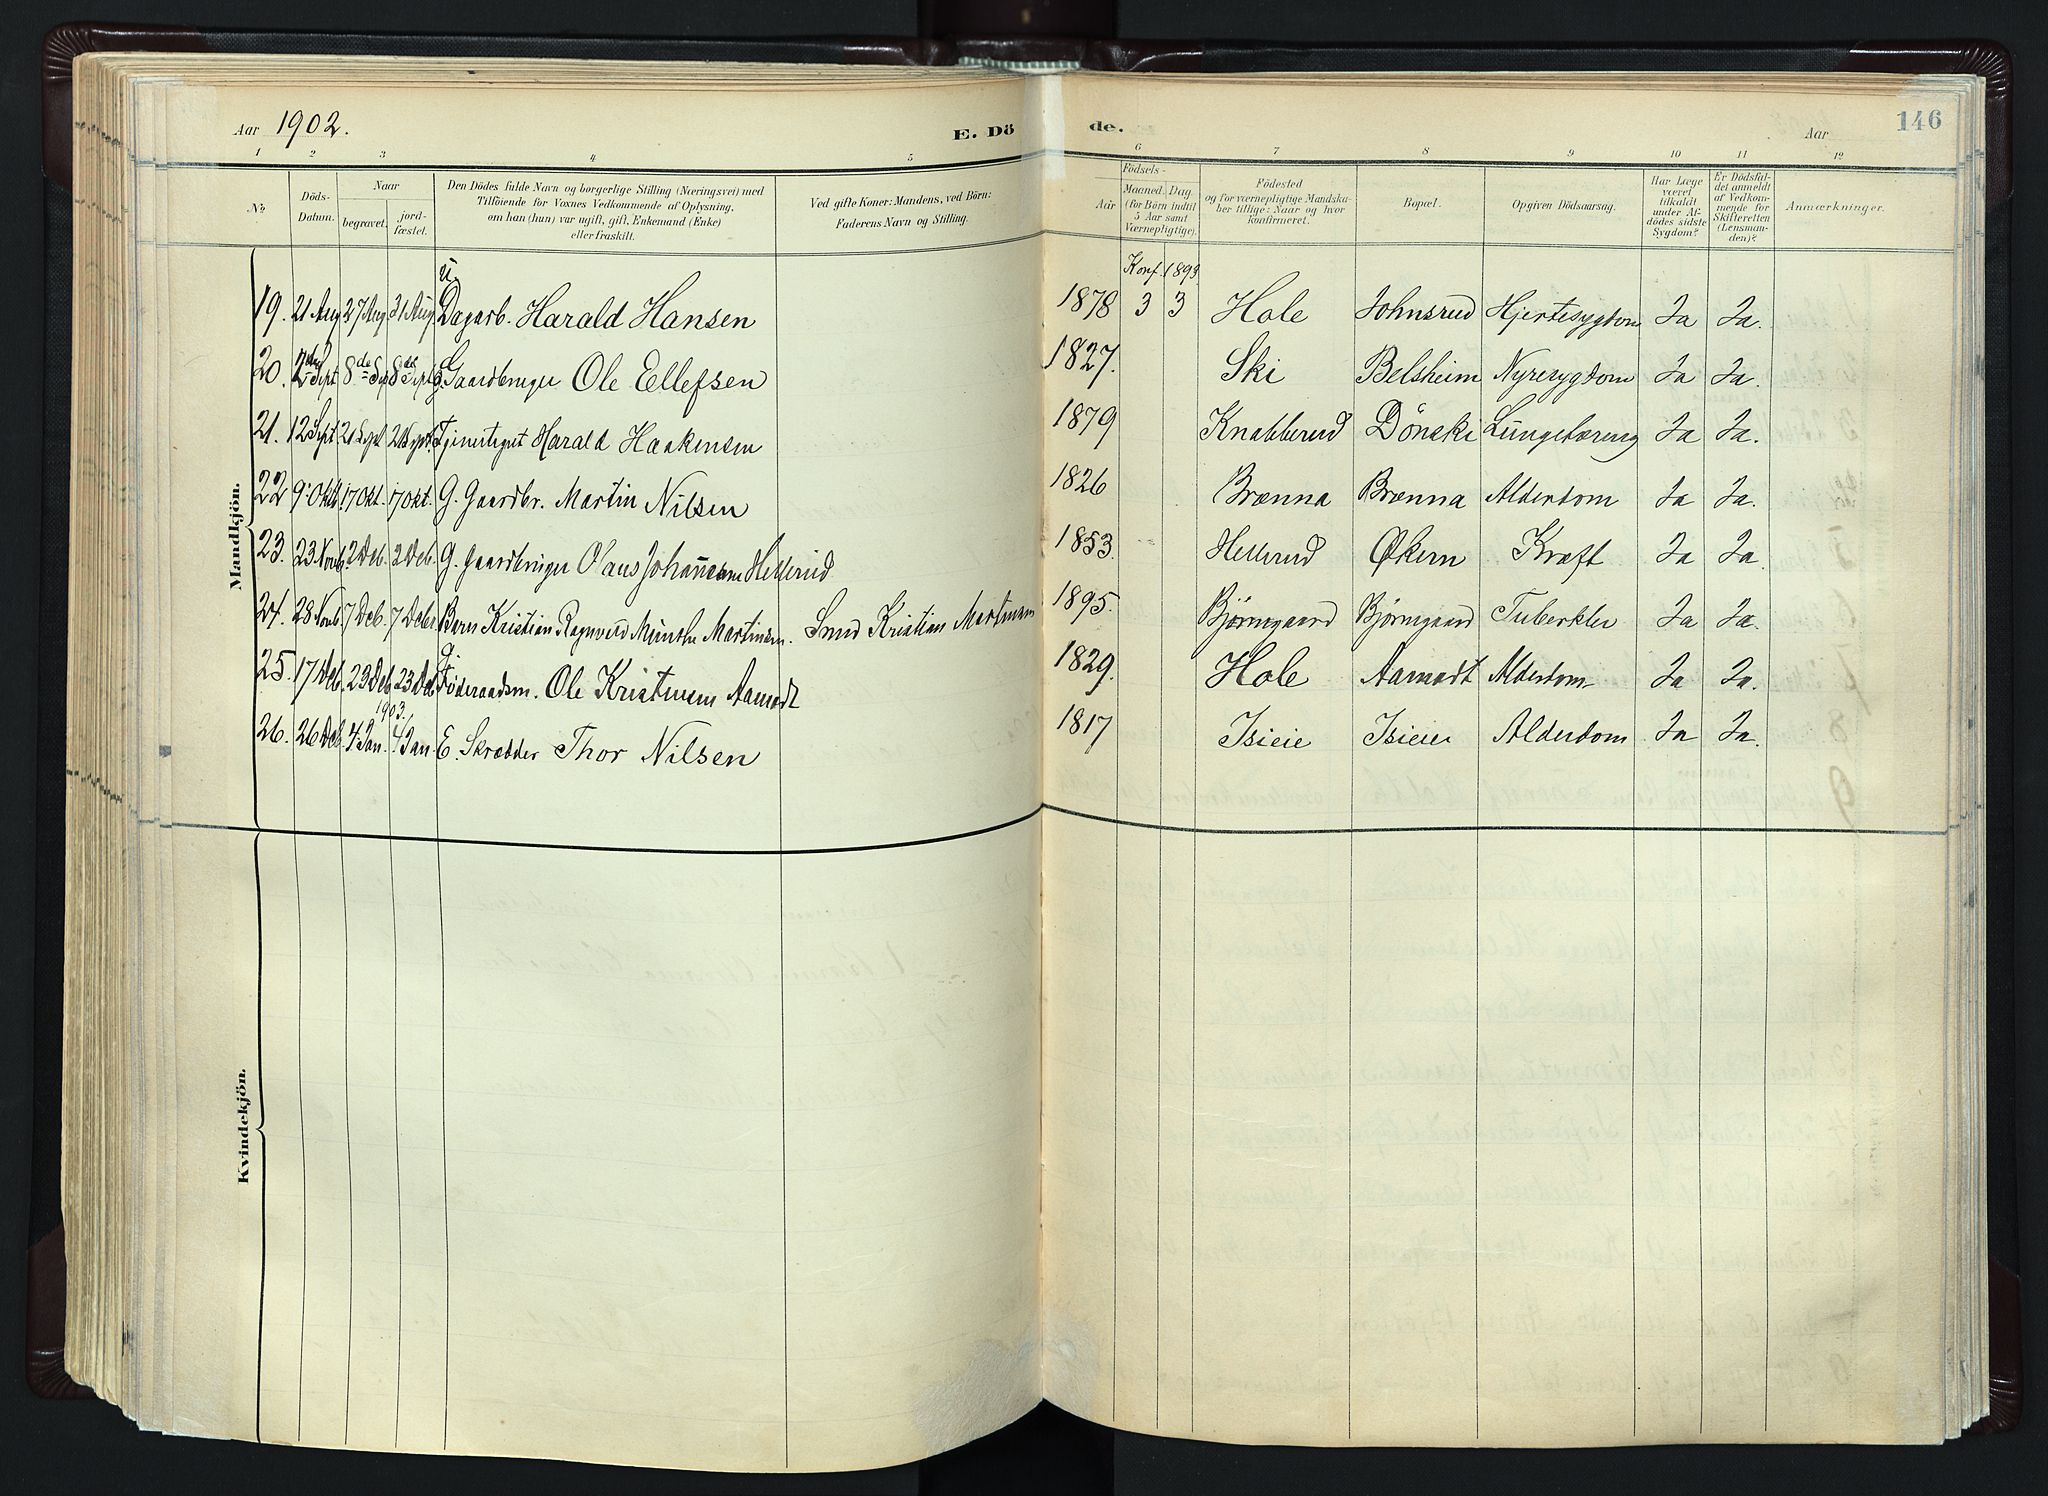 Aar 1902.
E. Dö
de.
Aar
146
1 2 3 4 5 6 7 8 9 10 11 12
No
Döds-
Datum.
Naar
begravet.
jord-
fæstet.
Den Dödes fulde Navn og borgerlige Stilling (Næringsvei) med
Tilföiende for Voxnes Vedkommende af Oplysning,
om han (hun) var ugift, gift, Enkemand (Enke)
eller fraskilt.
Ved gifte Koner: Mandens, ved Börn:
Faderens Navn og Stilling.
Födsels-
Aar
Maaned. Dag.
(for Börn indtil
5 Aar samt
Værnepligtige).
Födested
og for værnepligtige Mandska-
ber tillige: Naar og hvor
konfirmeret.
Bopæl.
Opgiven Dödsaarsag.
Har Læge
været
tilkaldt
under Af-
dödes sidste
Sygdom?
Er Dödsfal-
det anmeldt
af Vedkom-
mende for
Skifteretten
(Lensman-
den)?
Anmærkninger.
Mandkjön.
Konf. 1893
19. 21 Aug 27 Aug 31 Aug U. Dagarb. Harald Hansen 1878 3 3 Hole Johnsrud Hjertesygdom Ja Ja.
20. Sept 8de Sept 8de Sept G. Gaardbruger Ole Ellefsen 1827. Ski Belsheim Nyresygdom Ja Ja.
21. 12 Sept 21 Sept 21 Sept. Harald Haakensen 1879 Knabberud Dönski Lungebetæreng Ja Ja.
22 9 Oktb 17 Okt. 17 Okt. G. Gaardbr. Martin Nilsen 1826 Brænna Brænna Alderdom Ja Ja.
23. 23 Novb 2 Deb. 2 Deb. G. Gaardbruger Olaus Johannesen Hellerud 1853. Hellerud Økern Kræft Ja Ja.
24. 28 Novb 7 Deb. 7 Debr Barn Kristian Ragnvald Munthe Martinsen. Smed Kristian Martinsen 1895. Bjørngaard Bjørngaard Tuberkler Ja Ja.
25. 17 Deb. 23 Deb 23 Deb G. Føderaadsm. Ole Kristensen Aamodt 1829. Hole Aamodt Alderdom Ja Ja.
1903.
26. 26 Deb 4 Jan. 4 Jan E. Skrædder Thor Nilsen 1817 Isieie Isieie Alderdom Ja Ja.
Kvindekjön.